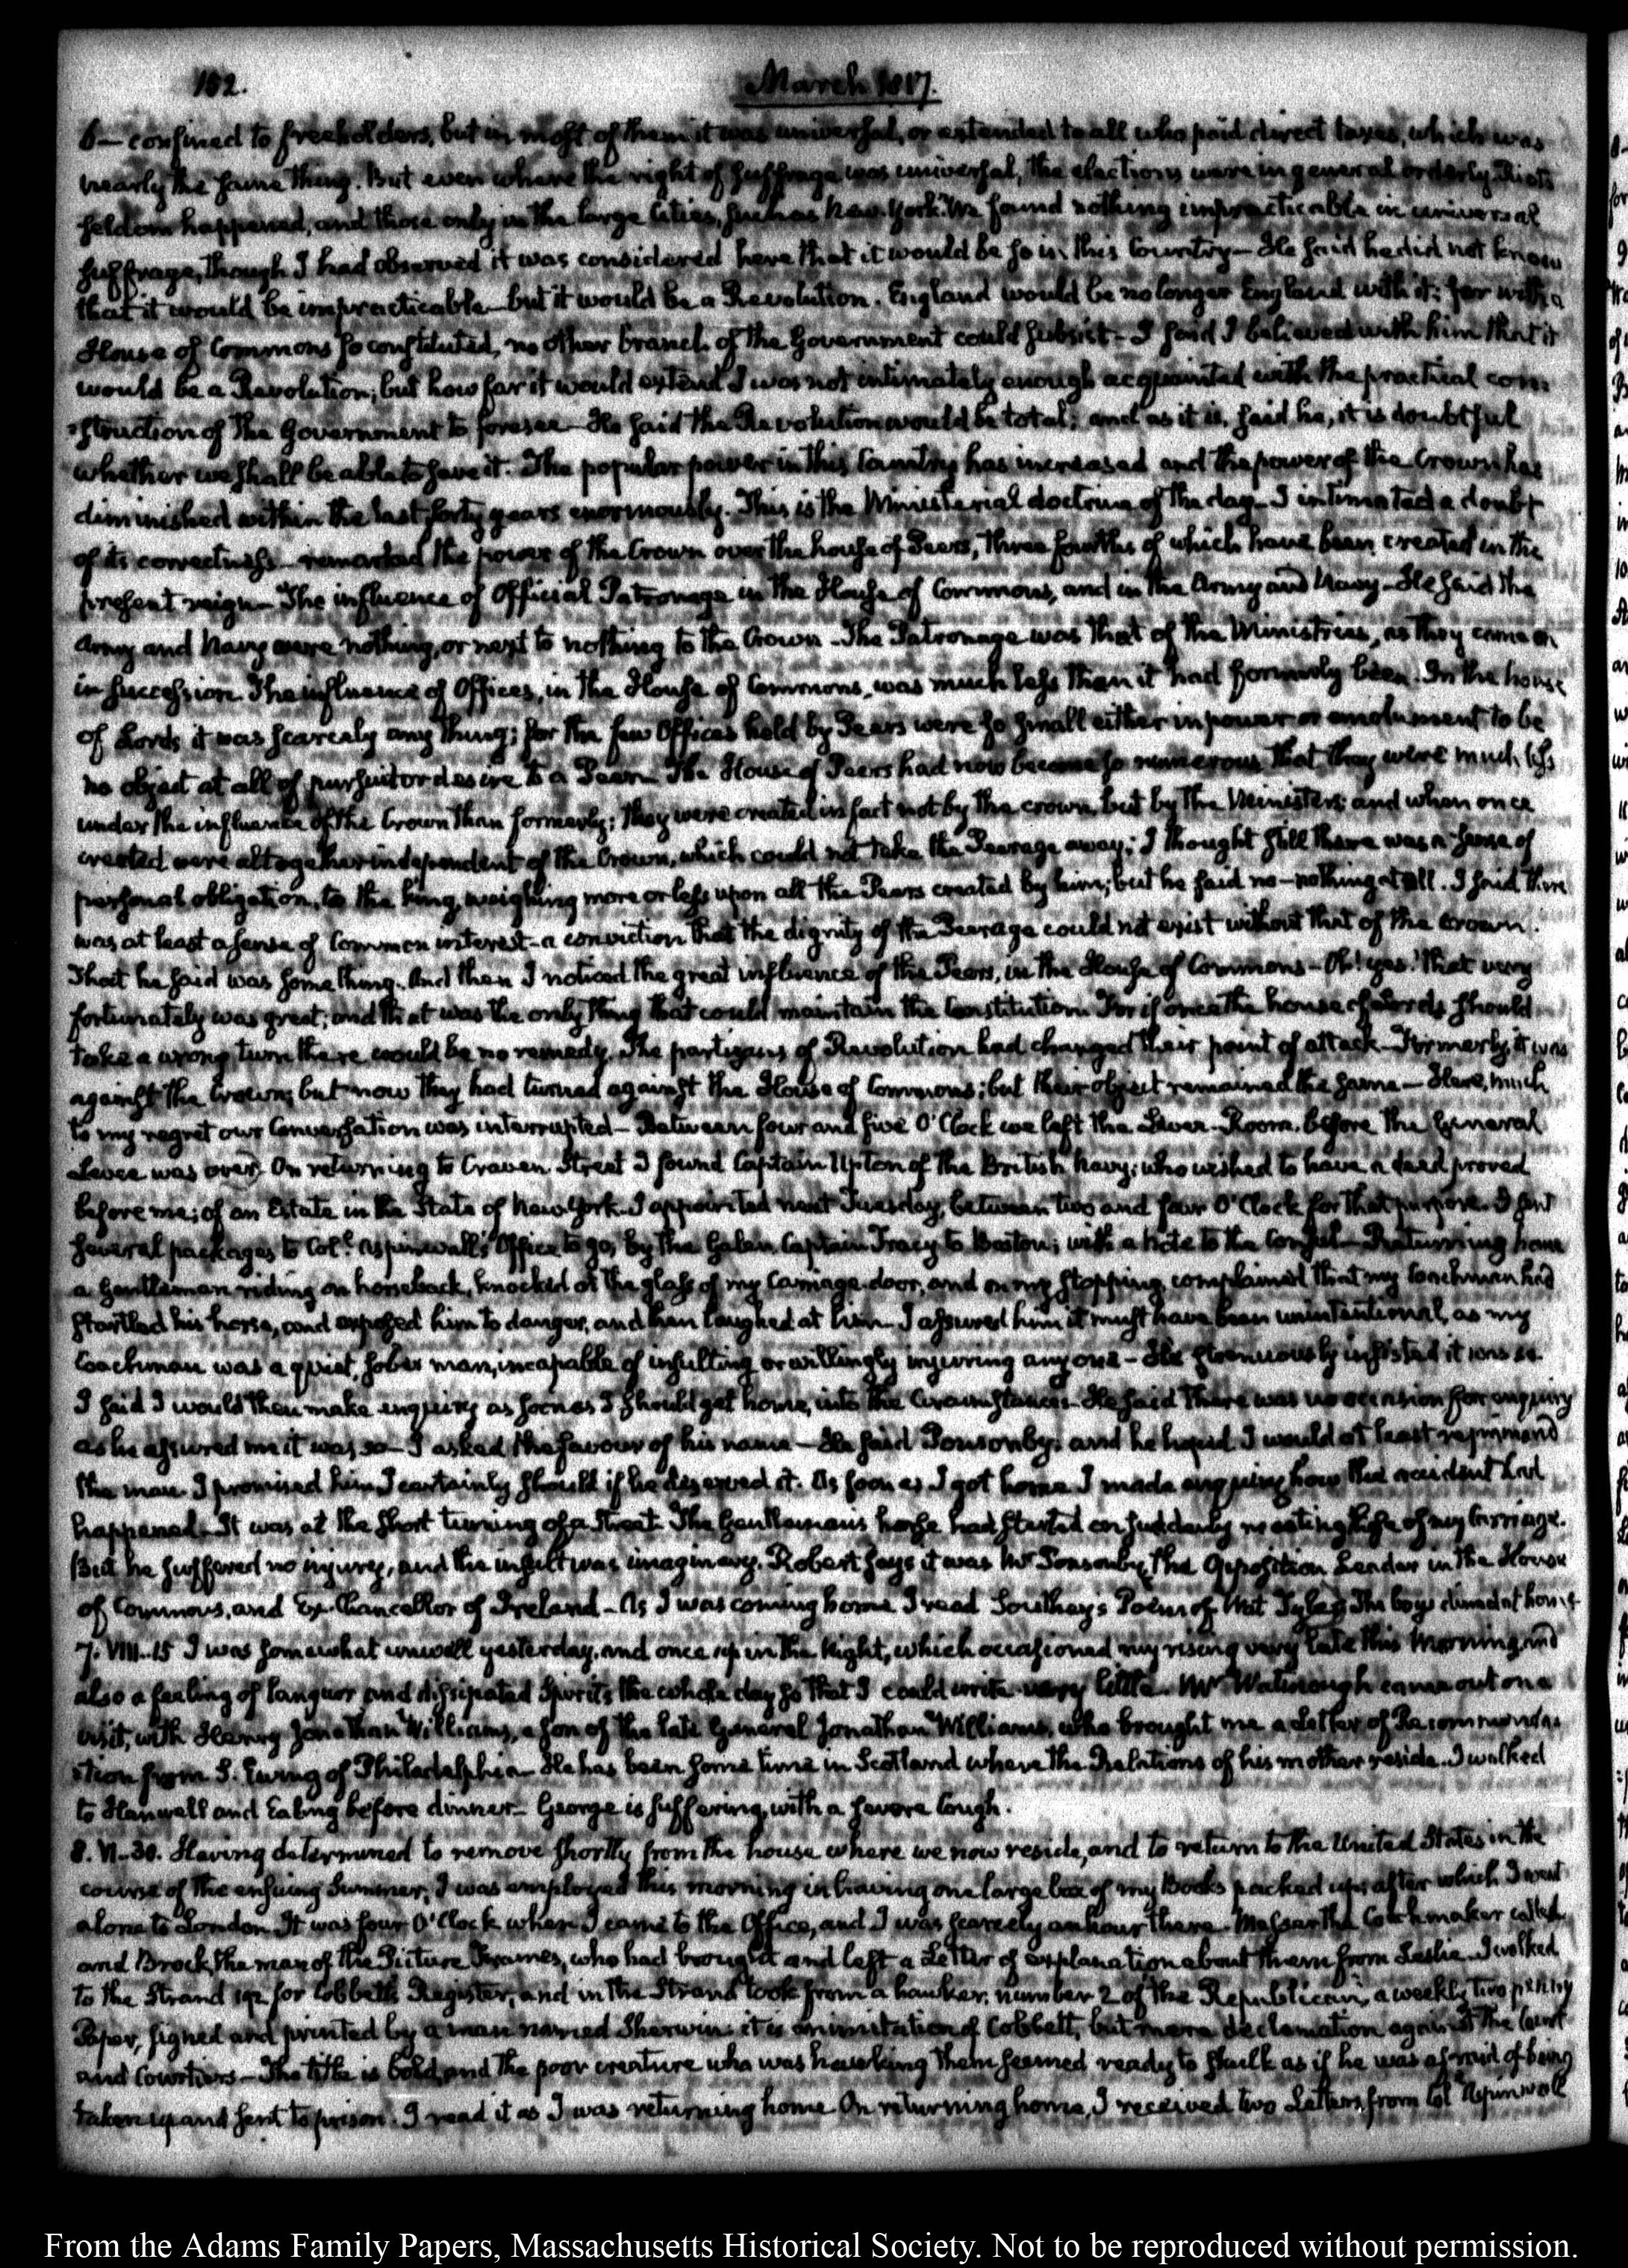 152.
March 1817.
6— confined to freeholders, but in most of them it was universal, or extended to all who paid direct taxes, which was
nearly the same thing. But even where the right of suffrage was universal, the elections were in general orderly. Riots
seldom happened, and those only in the large Cities, such as New York. We found nothing impracticable in universal
suffrage, though I had observed it was considered here that it would be so in this Country— He said he did not know
that it would be impracticable— but it would be a Revolution. England would be no longer England with it; for with a
House of Commons so constituted, no other branch of the Government could subsist— I said I believed with him that it
would be a Revolution; but how far it would extend I was not intimately enough acquainted with the practical con:
:struction of the Government to foresee— He said the Revolution would be total; and as it is, said he, it is doubtful
whether we shall be able to save it. The popular power in this Country has increased and the power of the Crown has
diminished within the last forty years enormously. This is the Ministerial doctrine of the day— I intimated a doubt
of its correctness— remarked the power of the Crown over the house of Peers, three fourths of which have been created in the
present reign— The influence of Official Patronage in the House of Commons, and in the Army and Navy— He said the
Army and Navy were nothing, or next to nothing to the Crown— The Patronage was that of the Ministries, as they came on
in succession. The influence of Offices, in the House of Commons, was much less than it had formerly been. In the house
of Lords it was scarcely any thing; for the few Offices held by Peers were so small either in power or emolument to be
no object at all of pursuit or desire to a Peer— The House of Peers had now become so numerous that they were much less
under the influence of the Crown than formerly; they were created in fact not by the crown, but by the Ministers; and when once
created were altogether independent of the Crown, which could not take the Peerage away; I thought still there was a sense of
personal obligation, to the king, weighing more or less upon all the Peers created by him; but he said no— nothing at all. I said there
was at least a sense of common interest— a conviction that the dignity of the Peerage could not exist without that of the Crown.
That he said was something. And then I noticed the great influence of the Peers, in the House of Commons— Oh! yes! that very
fortunately was great; and that was the only thing that could maintain the Constitution. For if once the house of Lords should
take a wrong turn there would be no remedy. The partizans of Revolution had changed their point of attack— Formerly, it was
against the Crown; but now they had turned against the House of Commons; but their object remained the same— Here, much
to my regret our Conversation was interrupted— Between four and five O'Clock we left the Levee-Room, before the General
Levee was over. On returning to Craven Street I found Captain Upton of the British Navy; who wished to have a deed proved
before me; of an Estate in the State of New York. I appointed next Tuesday, between two and four O'Clock for that purpose. I sent
several packages to Coll. Aspinwall's Office to go, by the Galen, Captain Tracy to Boston; with a note to the Consul— Returning home
a Gentleman riding on horseback, knocked at the glass of my Carriage-door, and on my stopping, complained that my Coachman had
startled his horse, and exposed him to danger, and then laughed at him— I assured him it must have been unintentional, as my
Coachman was a quiet, sober man, incapable of insulting or willingly injuring any one— He strenuously insisted it was so.
I said I would then make enquiry as soon as I should get home, into the Circumstances— He said there was no occasion for enquiry
as he assured me it was so— I asked the favour of his name— He said Ponsonby; and he hoped I would at least reprimand
the man. I promised him I certainly should if he deserved it. As soon as I got home I made enquiry how the accident had
happened— It was at the short turning of a street. The Gentleman's horse had started on suddenly meeting the of my Carriage.
But he suffered no injury, and the insult was imaginary. Robert says it was Mr Ponsonby, the Opposition Leader in the House
of Commons, and Ex-Chancellor of Ireland— As I was coming home I read Southey's Poem of Wat Tyler. The boys dined at home.
7. VIII..15 I was somewhat unwell yesterday, and once up in the Night, which occasioned my rising very late this Morning, and
also a feeling of languor and dissipated Spirits the whole day so that I could write very little— Mr Watmough came out on a
visit, with Henry Jonathan Williams, a son of the late General Jonathan Williams, who brought me a Letter of Recommenda:
:tion from S. Ewing of Philadelphia— He has been some time in Scotland where the Relations of his mother reside. I walked
to Hanwell and Ealing before dinner— George is suffering with a severe Cough.
8. VI..30. Having determined to remove shortly from the house where we now reside, and to return to the United States in the
course of the ensuing Summer, I was employed this morning in having one large box of my Books packed up; after which I went
alone to London. It was four O'Clock when I came to the Office, and I was scarcely an hour there. the Coachmaker called
and Brock, the man of the Picture Frames, who had brought and left a Letter of explanation about them from Leslie. I walked
to the Strand 192 for Cobbett's Register, and in the Strand took from a hawker, number 2 of the Republican, a weekly two penny
Paper, signed and printed by a man named Sherwin: it is an imitation of Cobbett, but mere declamation against the Court
and Courtiers— The title is bold, and the poor creature who was hawking them seemed ready to skulk as if he was afraid of being
taken up and sent to prison. I read it as I was returning home On returning home, I received two Letters, from Col. Aspinwall
From the Adams Family Papers, Massachusetts Historical Society. Not to be reproduced without permission.